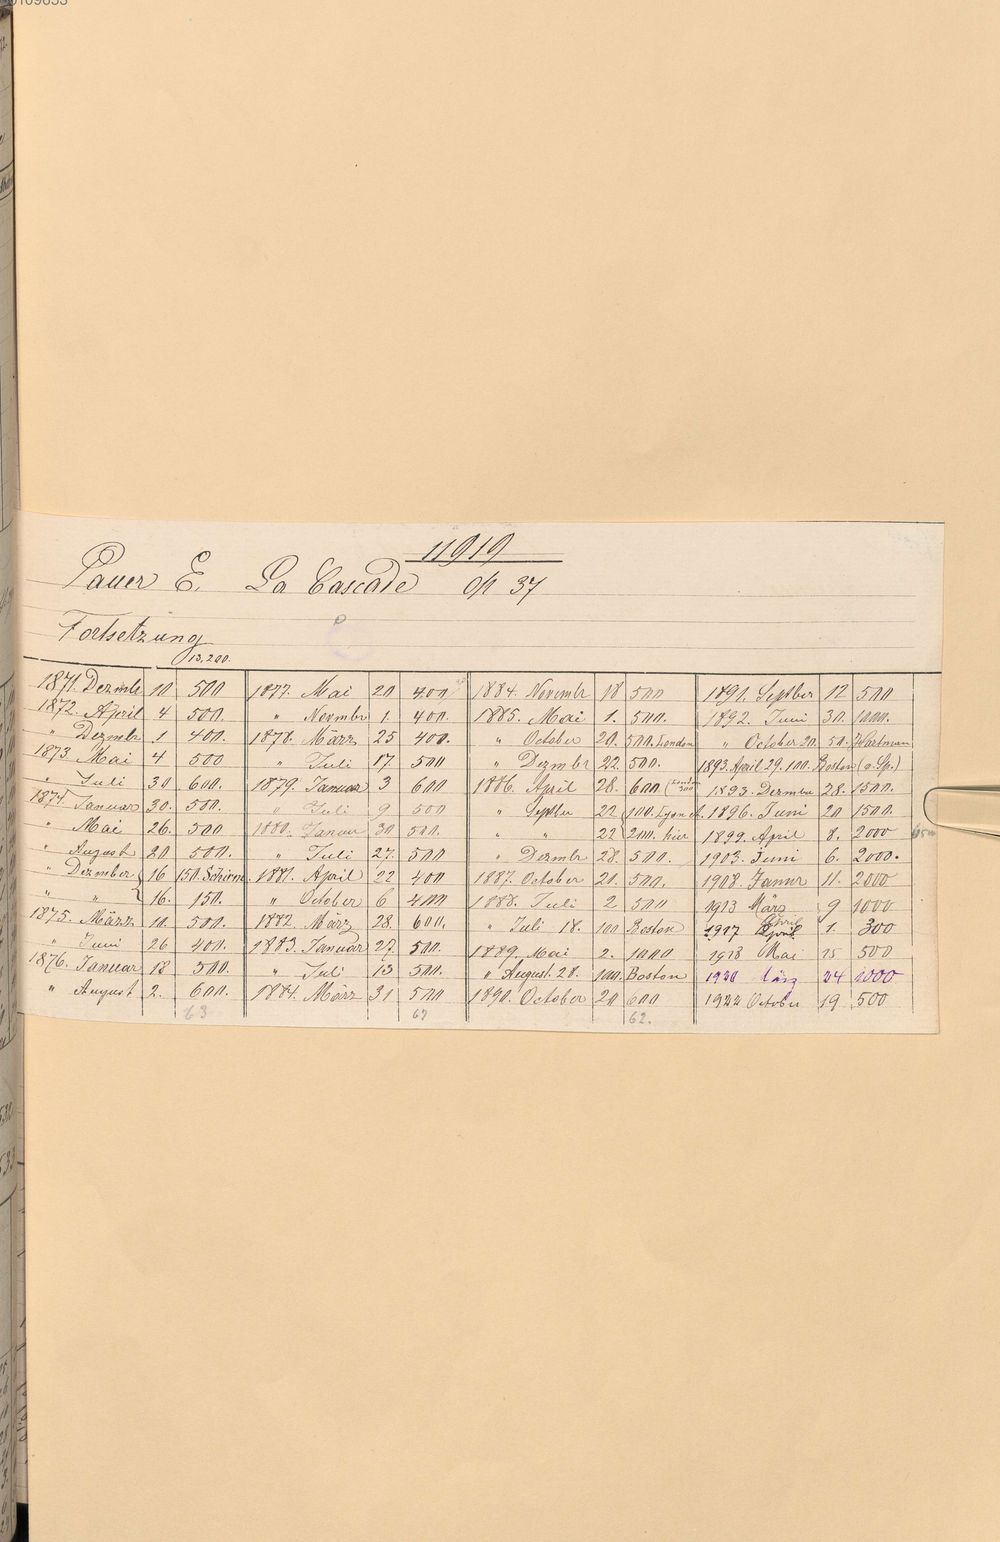 11919
Pauer E. La Cascade op 37
Fortsetzung
13,200.
1871. Dezmbr 10 500
1872. April 4 500.
" Dezmbr 1 400.
1873. Mai 4 500
" Juli 30 600.
1874. Januar 30. 500.
" Mai 26. 500
" August 20 500.
" Dezember 16 150. Schirm.
" 16. 150.
1875. März 10. 500.
" Juni 26 400.
1876. Januar 18 500.
" August 2. 600.
63
1877. Mai 20 400
" Novmbr 1. 400.
1878. März 25 400.
" Juli 17 500
1879. Januar 3 600
" Juli 9 500
1880. Januar 30 500.
" Juli 27. 500
1881. April 22 400
" October 6 400
1882. März 28. 600.
1883. Januar 27. 500.
" Juli 13 500.
1884. März 31 500
67
1884. Novembr 18 500
1885. Mai 1. 500.
" October 20. 500. London
" Dezmbr 22. 500.
1886. April 28. 600 (London 300
" Septbr 22 100. Lyon
" " 22 200. hier
" Dezmbr 28. 500.
1887. October 20. 500.
1888. Juli 2 500
" Juli 18. 100 Boston
1889. Mai 2. 1000
" August 28. 100. Boston
1890. October 20 600
62.
1891. Septber 12 500
1892. Juni 30. 1000.
" October 20. 50. Hartman
1893. April 29. 100. Boston (a. Sp.)
1893. Dezmbr 28. 1500.
1896. Juni 20 1500.
1899. April 8. 2000
1903. Juni 6. 2000.
1908. Januar 11. 2000
1913 März 9 1000
1917 April 1. 300
1918 Mai 15 500
1920 März 24 1000
1922 October 19 500